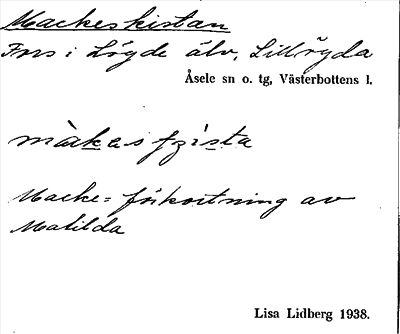 Mackeskistan
Fors i Lögde älv, Lillögda
Åsele sn o. tg, Västerbottens l.
Macke = förkortning av
Matilda
Lisa Lidberg 1938.